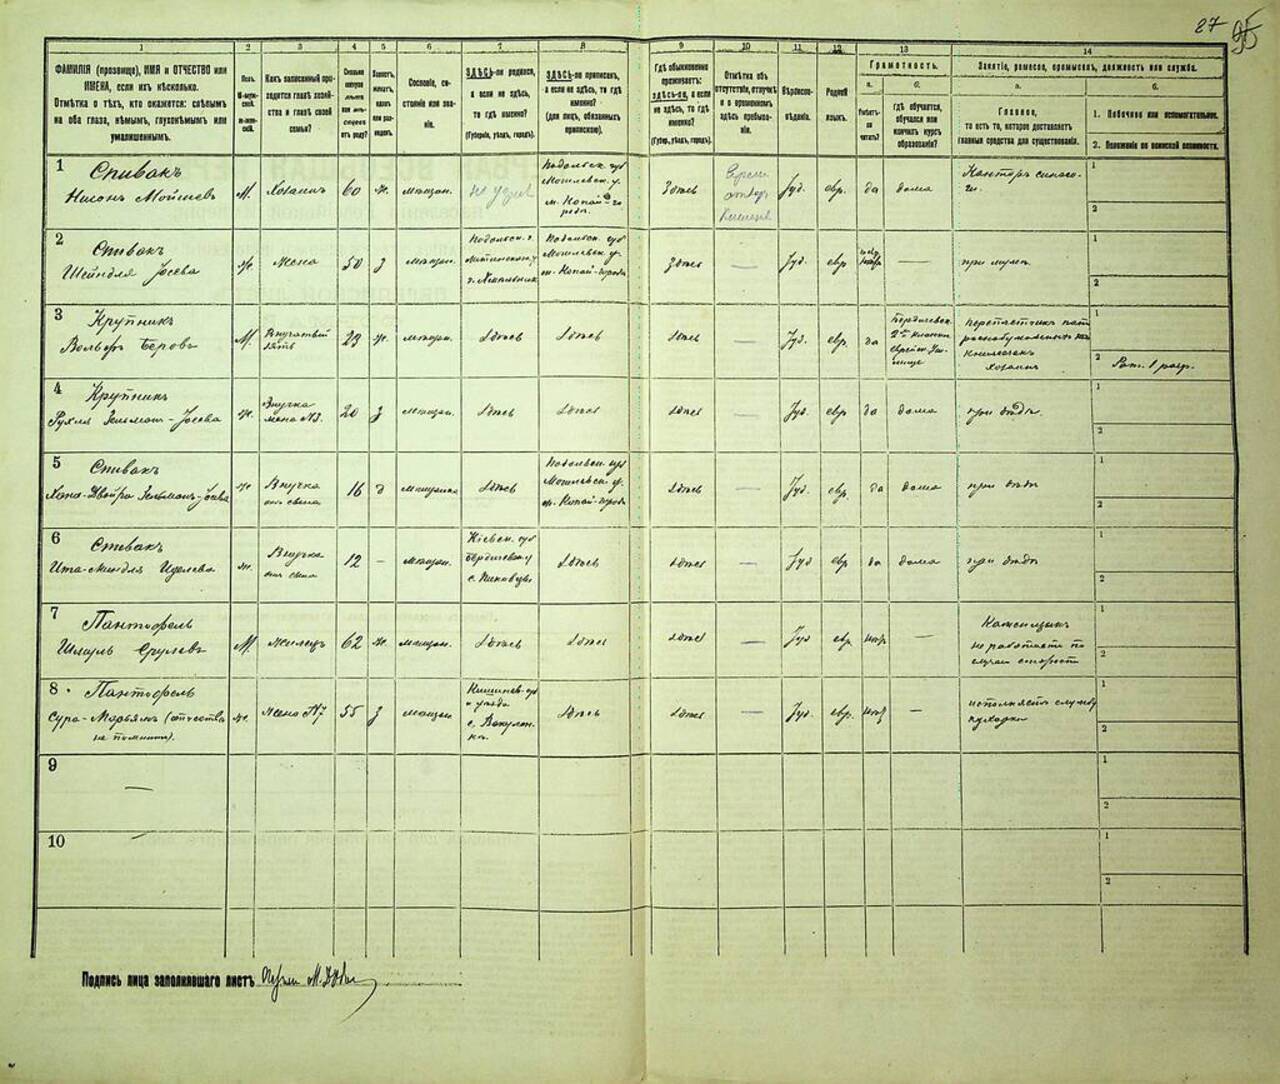 27 95
1 2 3 4 5 6 7 8 9 10 11 12 13 14
ФАМИЛІЯ (прозвище), ИМЯ и ОТЧЕСТВО или
ИМЕНА, если ихъ нѣсколько.
Отмѣтка о тѣхъ, кто окажется: слѣпымъ
на оба глаза, нѣмымъ, глухонѣмымъ или
умалишеннымъ.
Полъ.
М-мужской.
Ж-женскій.
Какъ записанный приходится
главѣ хозяйства
и главѣ своей
семьи?
Сословіе, состояніе
или званіе.
ЗДѢСЬ-ли родился,
а если не здѣсь,
то гдѣ именно?
(Губернія, уѣздъ, городъ).
ЗДѢСЬ-ли приписанъ,
а если не здѣсь, то гдѣ
именно?
(для лицъ, обязанныхъ
припискою).
Гдѣ обыкновенно
проживаетъ:
здѣсь-ли, а если
не здѣсь, то гдѣ
именно?
(Губер., уѣздъ, городъ).
Отмѣтка объ
отсутствіи, отлучкѣ
и о временномъ
здѣсь пребываніи.
Вѣроисповѣданіе.
Родной
языкъ.
Грамотность.
а.
Умѣетъ-ли
читать?
б.
гдѣ обучается,
обучался или
кончилъ курсъ
образованія?
Занятіе, ремесло, промыселъ, должность или служба.
а.
Главное,
то есть то, которое доставляетъ
главныя средства для существованія.
б.
1. Побочное или вспомогательное.
2. Положеніе по воинской повинности.
1 Спивакъ
Нисонъ Мойшевъ
М. Хозяинъ 60 ж. мѣщан.
Подольск. губ
Могилевск. у.
м. Копай-го
родъ.
Здѣсь
Іуд. евр. да дома
Канторъ синаго-
ги.
1
2
2 Спивакъ
Шейндля Іосева
ж. жена 50 з мѣщан.
Подольск. губ
Могилевск. у.
м. Копай-городъ
Здѣсь — Іуд. евр — при мужѣ
1
2
3 Крупникъ
Вольфъ Беровъ
М. Внучатый
зять 23 ж. мѣщан. здѣсь здѣсь здѣсь — Іуд. евр. да
Бердичевск.
2хъ классн.
еврейск. Учи-
лище
хозяинъ
1
2 Рат. 1 разр.
4 Крупникъ
Рухля Зельман-Іосева
ж. Внучка
жена №3. 20 з мѣщан. здѣсь здѣсь здѣсь — Іуд. евр да дома при дѣдѣ.
1
2
5 Спивакъ
Хана-Двойра Зельман-Іосева
ж Внучка
отъ сына 16 д мѣщанка здѣсь
Подольск. губ
Могилевск. у.
м. Копай-городъ
здѣсь — Іуд. евр. да дома при дѣдѣ
1
2
6 Спивакъ
Ита-Миндля Иделева
ж. Внучка
отъ сына 12 – мѣщан.
Кіевск. губ
Бердичевск. у
с. Пиковцы
здѣсь здѣсь — Іуд евр да дома при дѣдѣ
1
2
7 Пантофель
Шмуль Срулевъ
М. жилецъ 62 ж. мѣщан. здѣсь здѣсь здѣсь — Іуд евр —
не работаетъ по
случаю старости
1
2
8 Пантофель
Сура-Марьямъ (отчества
не помнитъ).
ж. жена №7 55 з мѣщан.
Кишинев. губ
и уѣзда
здѣсь здѣсь — Іуд. евр. —
исполняетъ службу
кухарки
1
2
9 —
1
2
10 —
1
2
Подпись лица заполнявшаго листъ